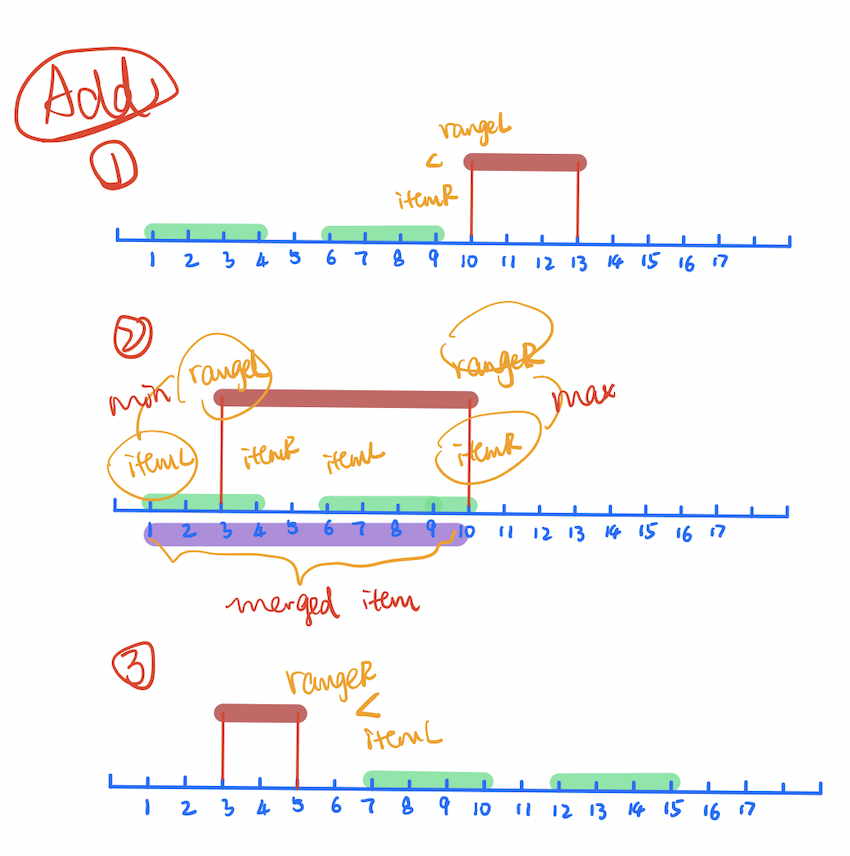 Add
①
rangeL
<
itemR
1 2 3 4 5 6 7 8 9 10 11 12 13 14 15 16 17
②
rangeL
rangeR
min
max
itemL itemR itemL itemR
1 2 3 4 5 6 7 8 9 10 11 12 13 14 15 16 17
merged item
③
rangeR
<
itemL
1 2 3 4 5 6 7 8 9 10 11 12 13 14 15 16 17